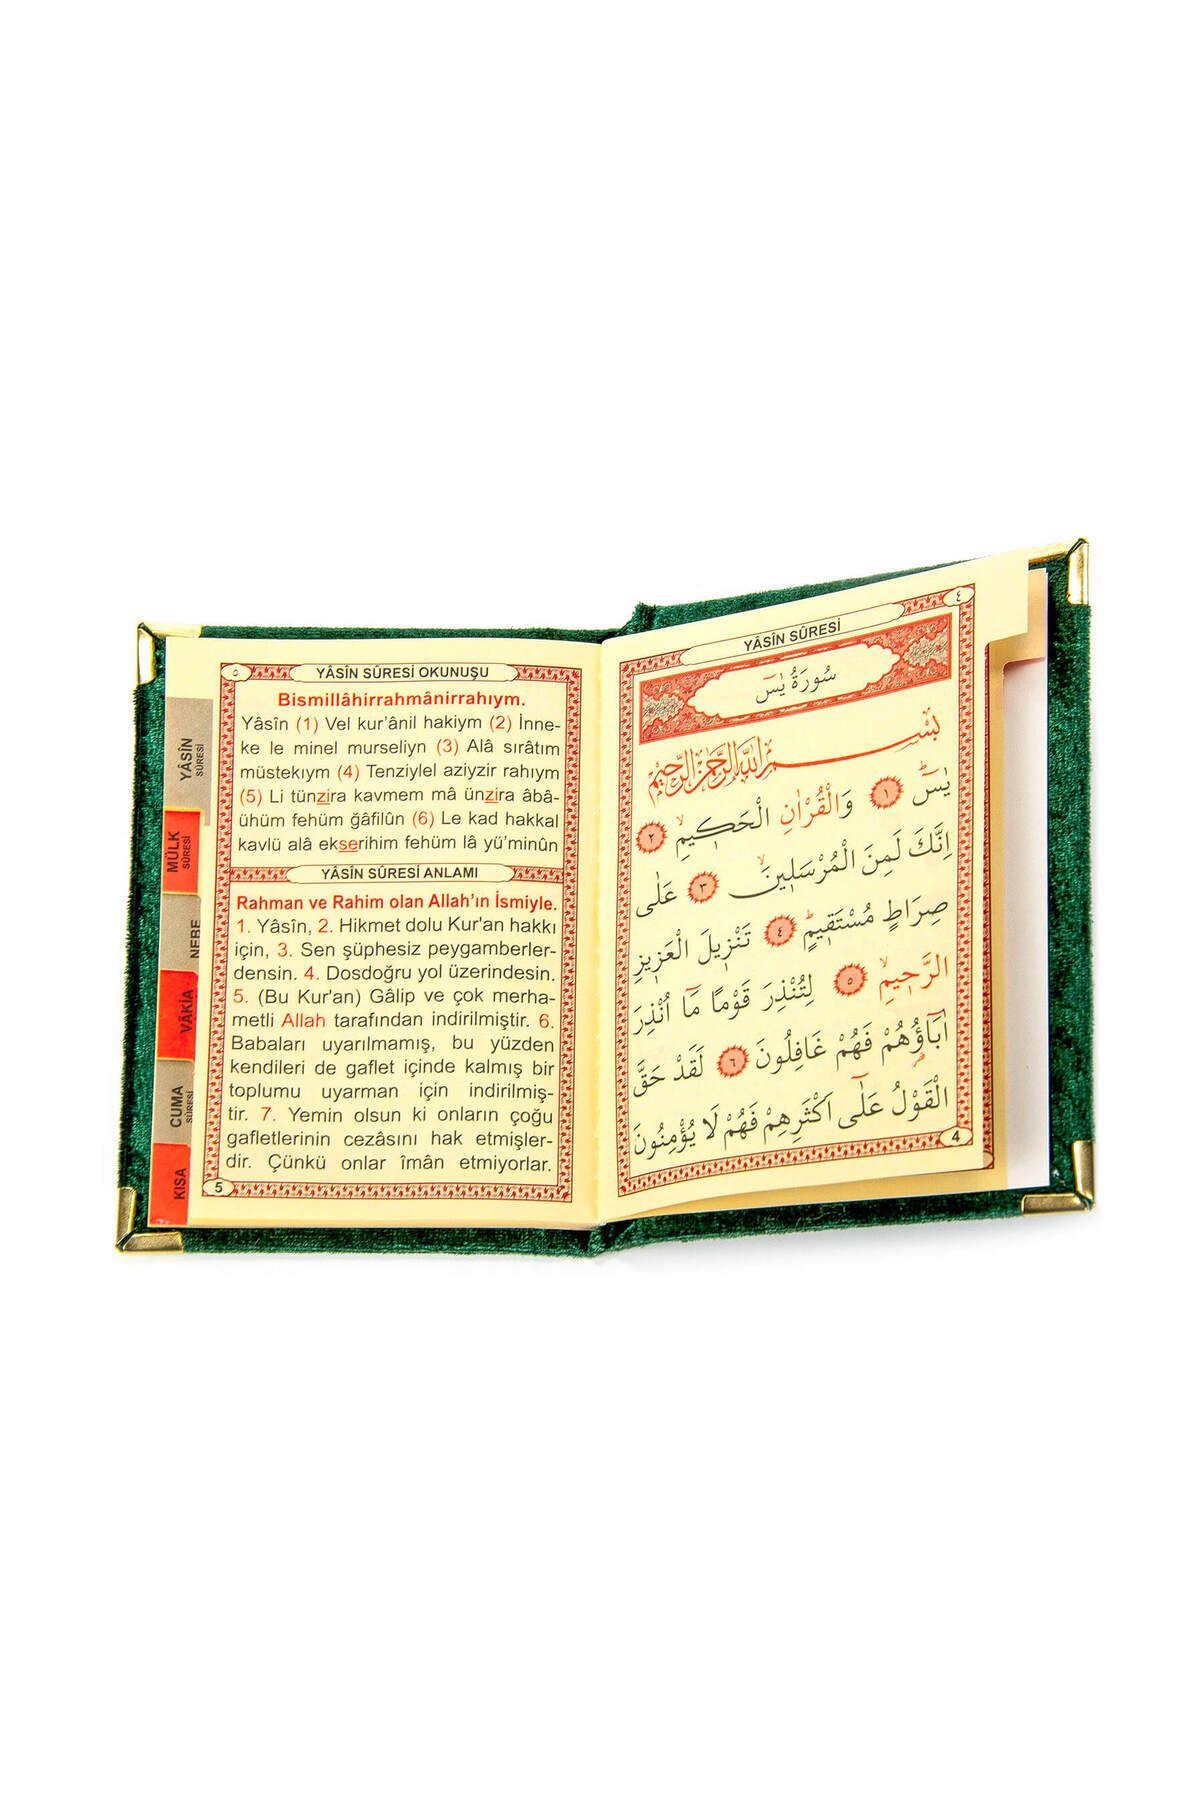 ٤
YÂSÎN SÛRESİ
سُورَةُ يٰسٓ
بِسْمِ اللّٰهِ الرَّحْمٰنِ الرَّحِيمِ
يٰسٓ ۚ ١ وَالْقُرْاٰنِ الْحَك۪يمِۙ ٢
اِنَّكَ لَمِنَ الْمُرْسَل۪ينَۙ ٣ عَلٰى
صِرَاطٍ مُسْتَق۪يمٍۜ ٤ تَنْز۪يلَ الْعَز۪يزِ
الرَّح۪يمِۙ ٥ لِتُنْذِرَ قَوْمًا مَٓا اُنْذِرَ
اٰبَٓاؤُ۬هُمْ فَهُمْ غَافِلُونَ ٦ لَقَدْ حَقَّ
الْقَوْلُ عَلٰٓى اَكْثَرِهِمْ فَهُمْ لَا يُؤْمِنُونَ
4
٥
YÂSÎN SÛRESİ OKUNUŞU
Bismillâhirrahmânirrahıym.
Yâsîn (1) Vel kur’ânil hakiym (2) İnne-
ke le minel murseliyn (3) Alâ sırâtım
müstekıym (4) Tenziylel aziyzir rahıym
(5) Li tünzira kavmem mâ ünzira âbâ-
ühüm fehüm ğâfilûn (6) Le kad hakkal
kavlü alâ ekserihim fehüm lâ yü’minûn
YÂSÎN SÛRESİ ANLAMI
Rahman ve Rahim olan Allah’ın İsmiyle.
1. Yâsîn, 2. Hikmet dolu Kur'an hakkı
için, 3. Sen şüphesiz peygamberler-
densin. 4. Dosdoğru yol üzerindesin.
5. (Bu Kur'an) Gâlip ve çok merha-
metli Allah tarafından indirilmiştir. 6.
Babaları uyarılmamış, bu yüzden
kendileri de gaflet içinde kalmış bir
toplumu uyarman için indirilmiş-
tir. 7. Yemin olsun ki onların çoğu
gafletlerinin cezâsını hak etmişler-
dir. Çünkü onlar îmân etmiyorlar.
5
YÂSÎN
SÛRESİ
MÜLK
SÛRESİ
NEBE
VÂKİA
CUMA
SÛRESİ
KISA